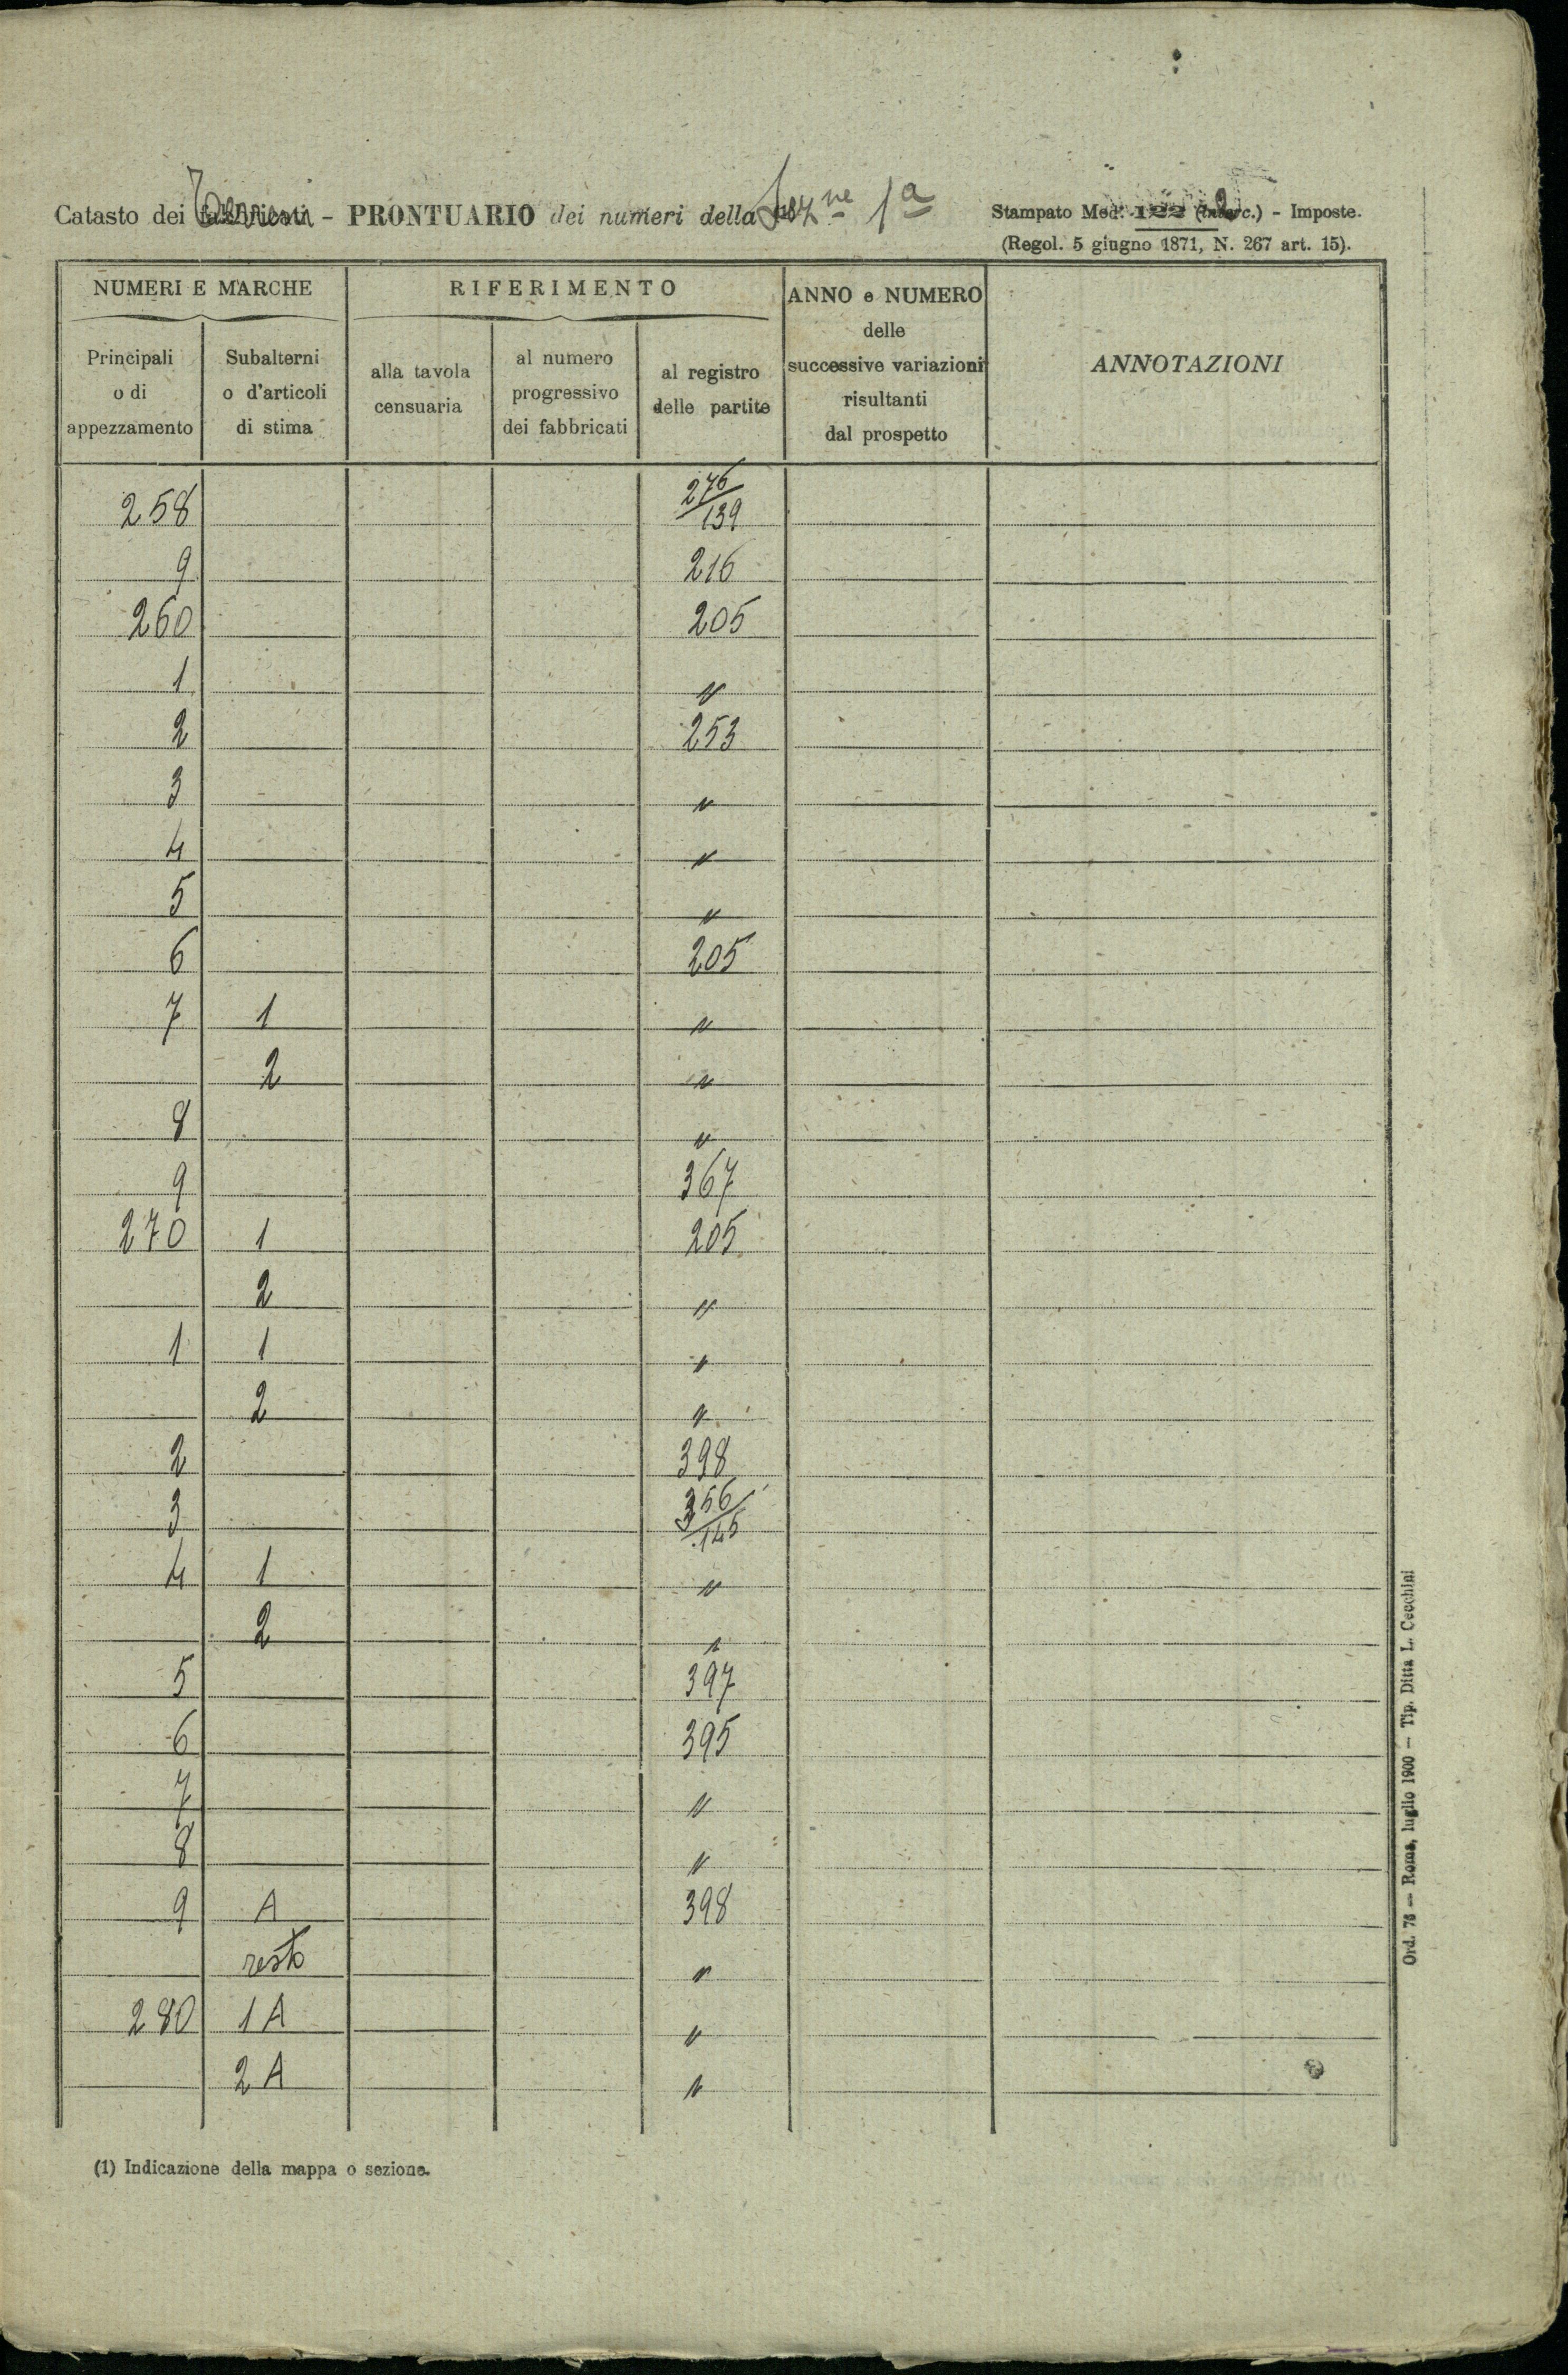 Catasto dei Terreni - PRONTUARIO dei numeri della Sez.ne 1a
Stampato Mod. 122 (Interc.) - Imposte.
(Regol. 5 giugno 1871, N. 267 art. 15).
NUMERI E MARCHE RIFERIMENTO ANNO e NUMERO delle successive variazioni risultanti dal prospetto ANNOTAZIONI
Principali o di appezzamento Subalterni o d'articoli di stima alla tavola censuaria al numero progressivo dei fabbricati al registro delle partite
258 276/139
9 216
260 205
1 "
2 253
3 "
4 "
5 "
6 205
7 1 "
2 "
8 "
9 367
270 1 205
2 "
1 1 "
2 "
2 398
3 356/145
4 1 "
2 "
5 397
6 395
7 "
8 "
9 A 398
resto "
280 1 A "
2 A "
(1) Indicazione della mappa o sezione.
Ord. 76 — Roma, luglio 1900 — Tip. Ditta L. Cecchini